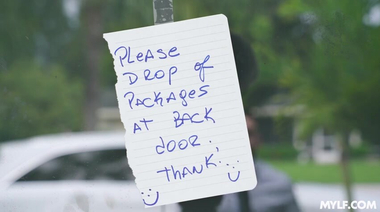 PLEASE
DROP of
PACKAGES
AT BACK
dOOR.
THANK...
MYLF.COM